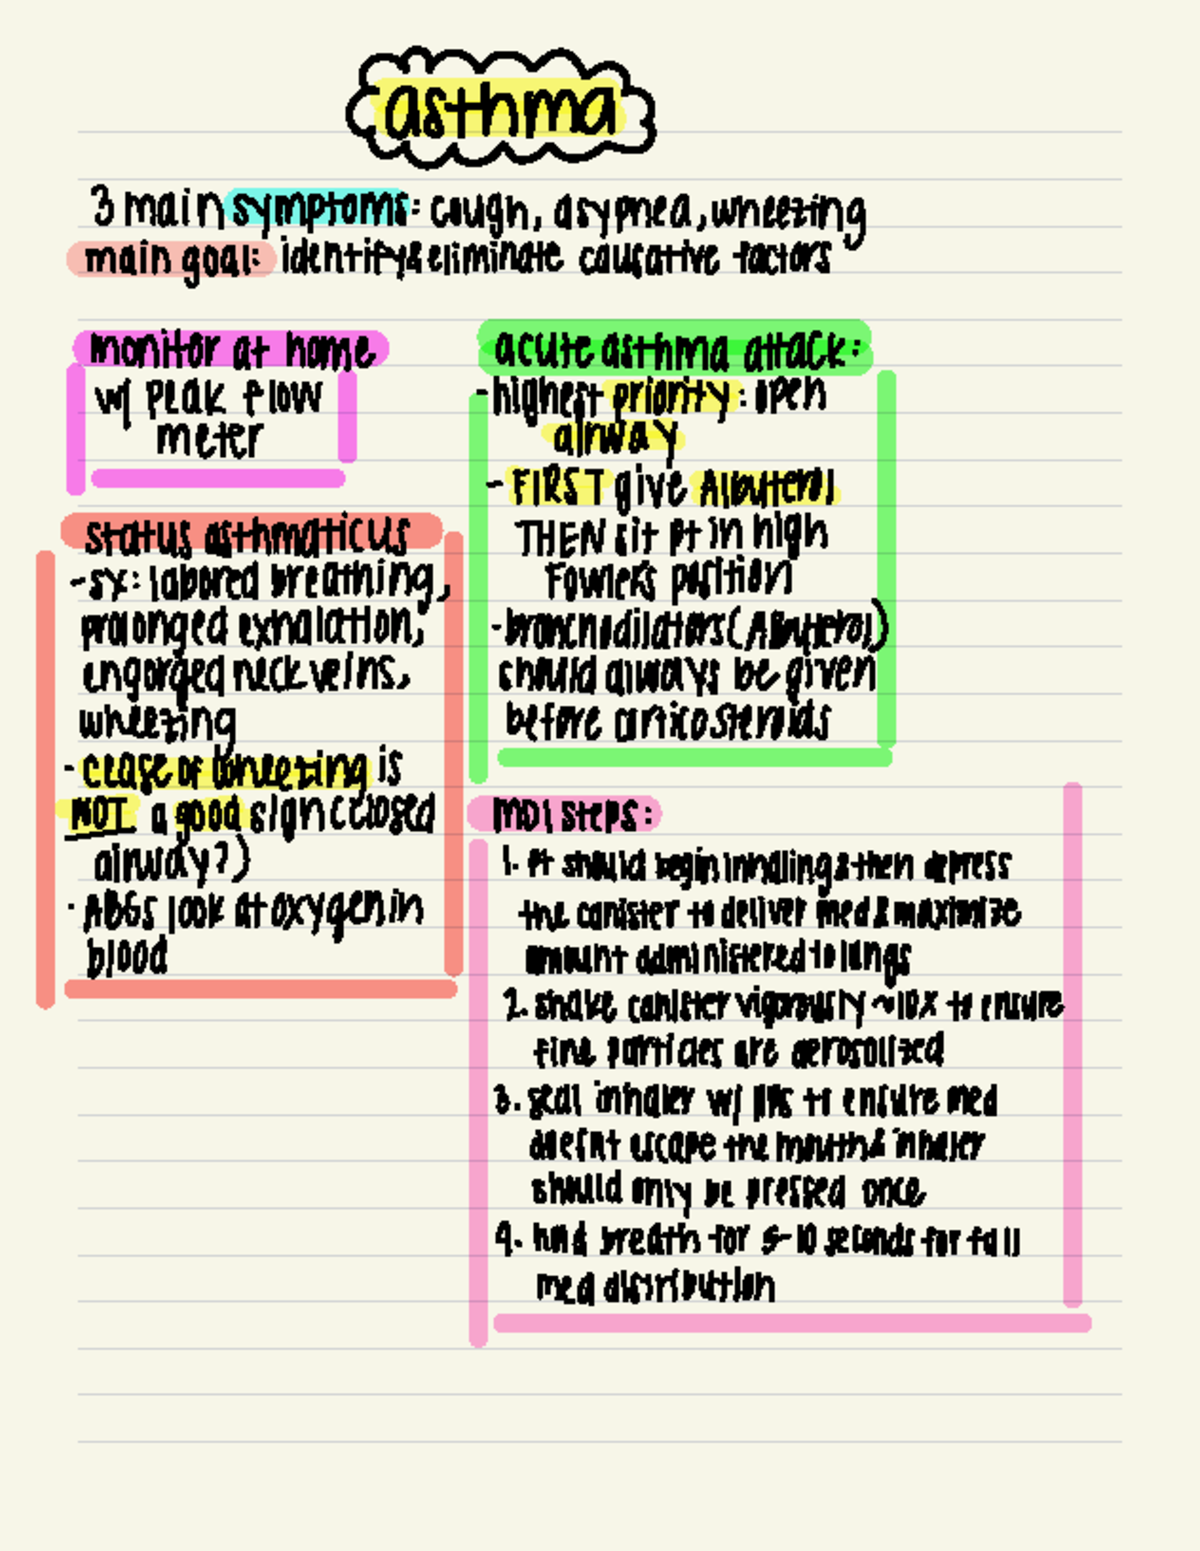 asthma
3 main symptoms: cough, dsypnea, wheezing
main goal: identify & eliminate causative factors
monitor at home
w/ peak flow
meter
status asthmaticus
- sx: labored breathing,
prolonged exhalation,
engorged neck veins,
wheezing
- cease of wheezing is
NOT a good sign (closed
airway?)
- ABGs look at oxygen in
blood
acute asthma attack:
- highest priority: open
airway
- FIRST give Albuterol
THEN sit pt in high
Fowler's position
- bronchodilators (Albuterol)
should always be given
before corticosteroids
MDI steps:
1. Pt should begin inhaling & then depress
the canister to deliver med & maximize
amount administered to lungs
2. shake canister vigorously ~10x to ensure
fine particles are aerosolized
3. seal inhaler w/ lips to ensure med
doesnt escape the mouth & inhaler
should only be pressed once
4. hold breath for 5-10 seconds for full
med distribution